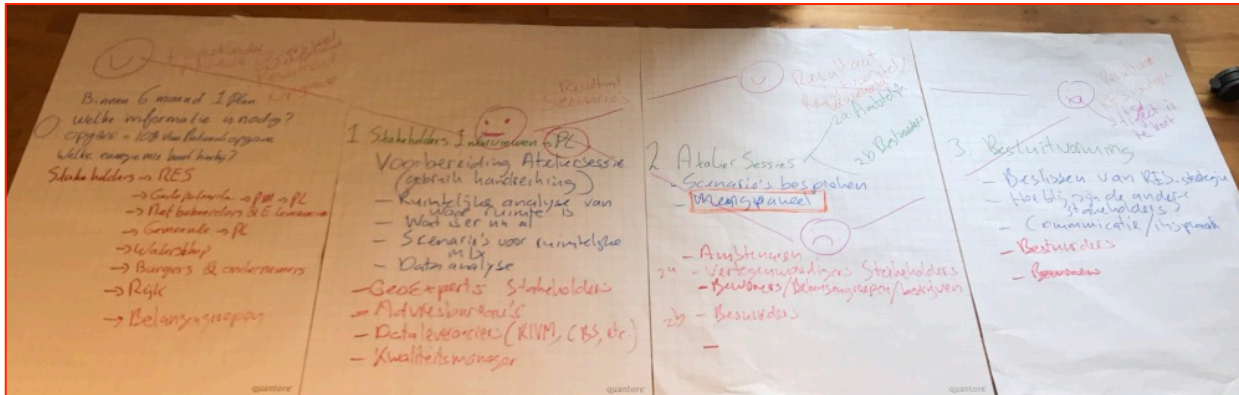 Resultaat
Opgave
Binnen 6 maand 1 Plan
Welke informatie is nodig?
Opgave =
Welke energiemix
Stakeholders → RES
→ PM → PL
→ Netbeheerders &
→ Gemeente → PL
→ Waterschap
→ Burgers & ondernemers
→ Rijk
→ Belangengroepen
quantore
Resultaat
Scenario's
1 Stakeholders Interviewen → PL
Voorbereiding Ateliersessie
(gebruik handreiking)
- Ruimtelijke analyse van
waar ruimte is
- Wat is er nu al
- Scenario's voor ruimtelijke
mix
- Data analyse
- GeoExperts Stakeholders
- Adviesbureau's
- Dataleveranciers (RIVM, CBS, etc.)
- Kwaliteitsmanager
quantore
Resultaat
2a Ambtelijk
2b Bestuurders
2 Atelier Sessies
- Scenario's bespreken
- Mengpaneel
- Ambtenaren
2a - Vertegenwoordigers Stakeholders
- Bewoners/Belangengroepen/bedrijven
2b - Bestuurders
quantore
Resultaat
RES
3. Besluitvorming
- Beslissen van RES.strategie
- Hoe blij zijn de andere
stakeholders?
- Communicatie/inspraak
- Bestuurders
- Bewoners
quantore